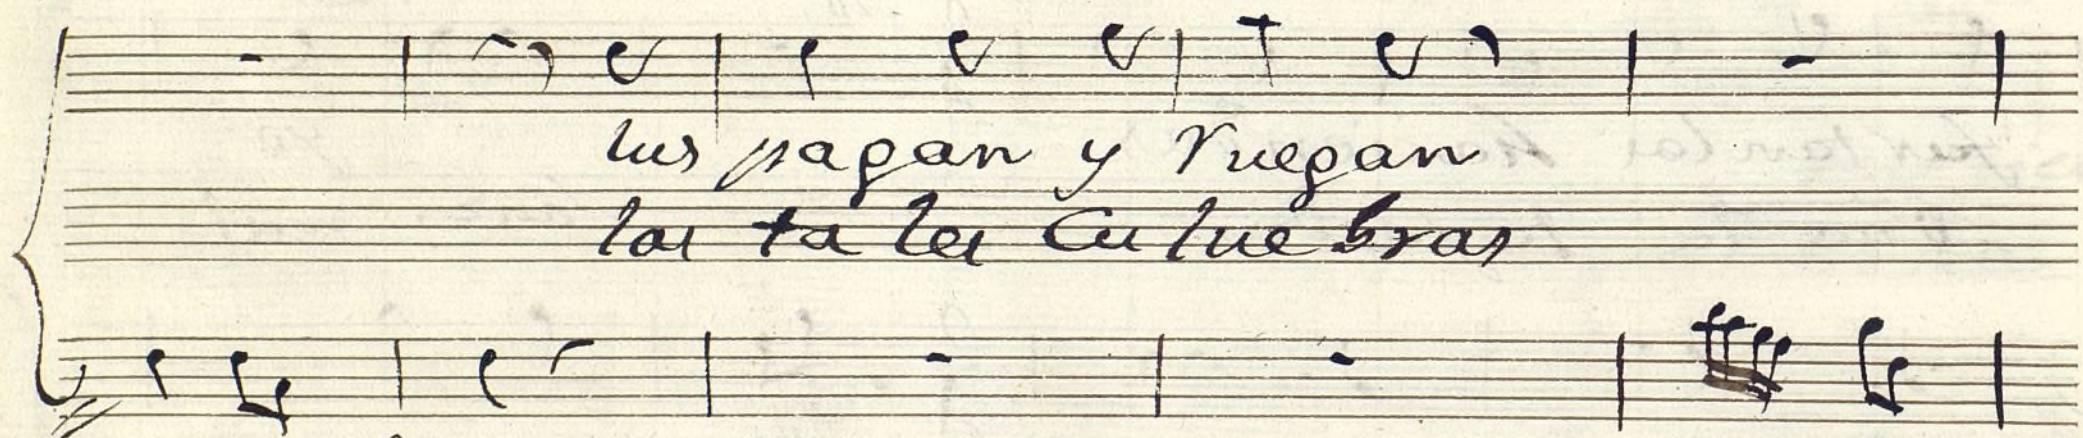 lus pagan y Ruegan
las ta les Cu lue bras